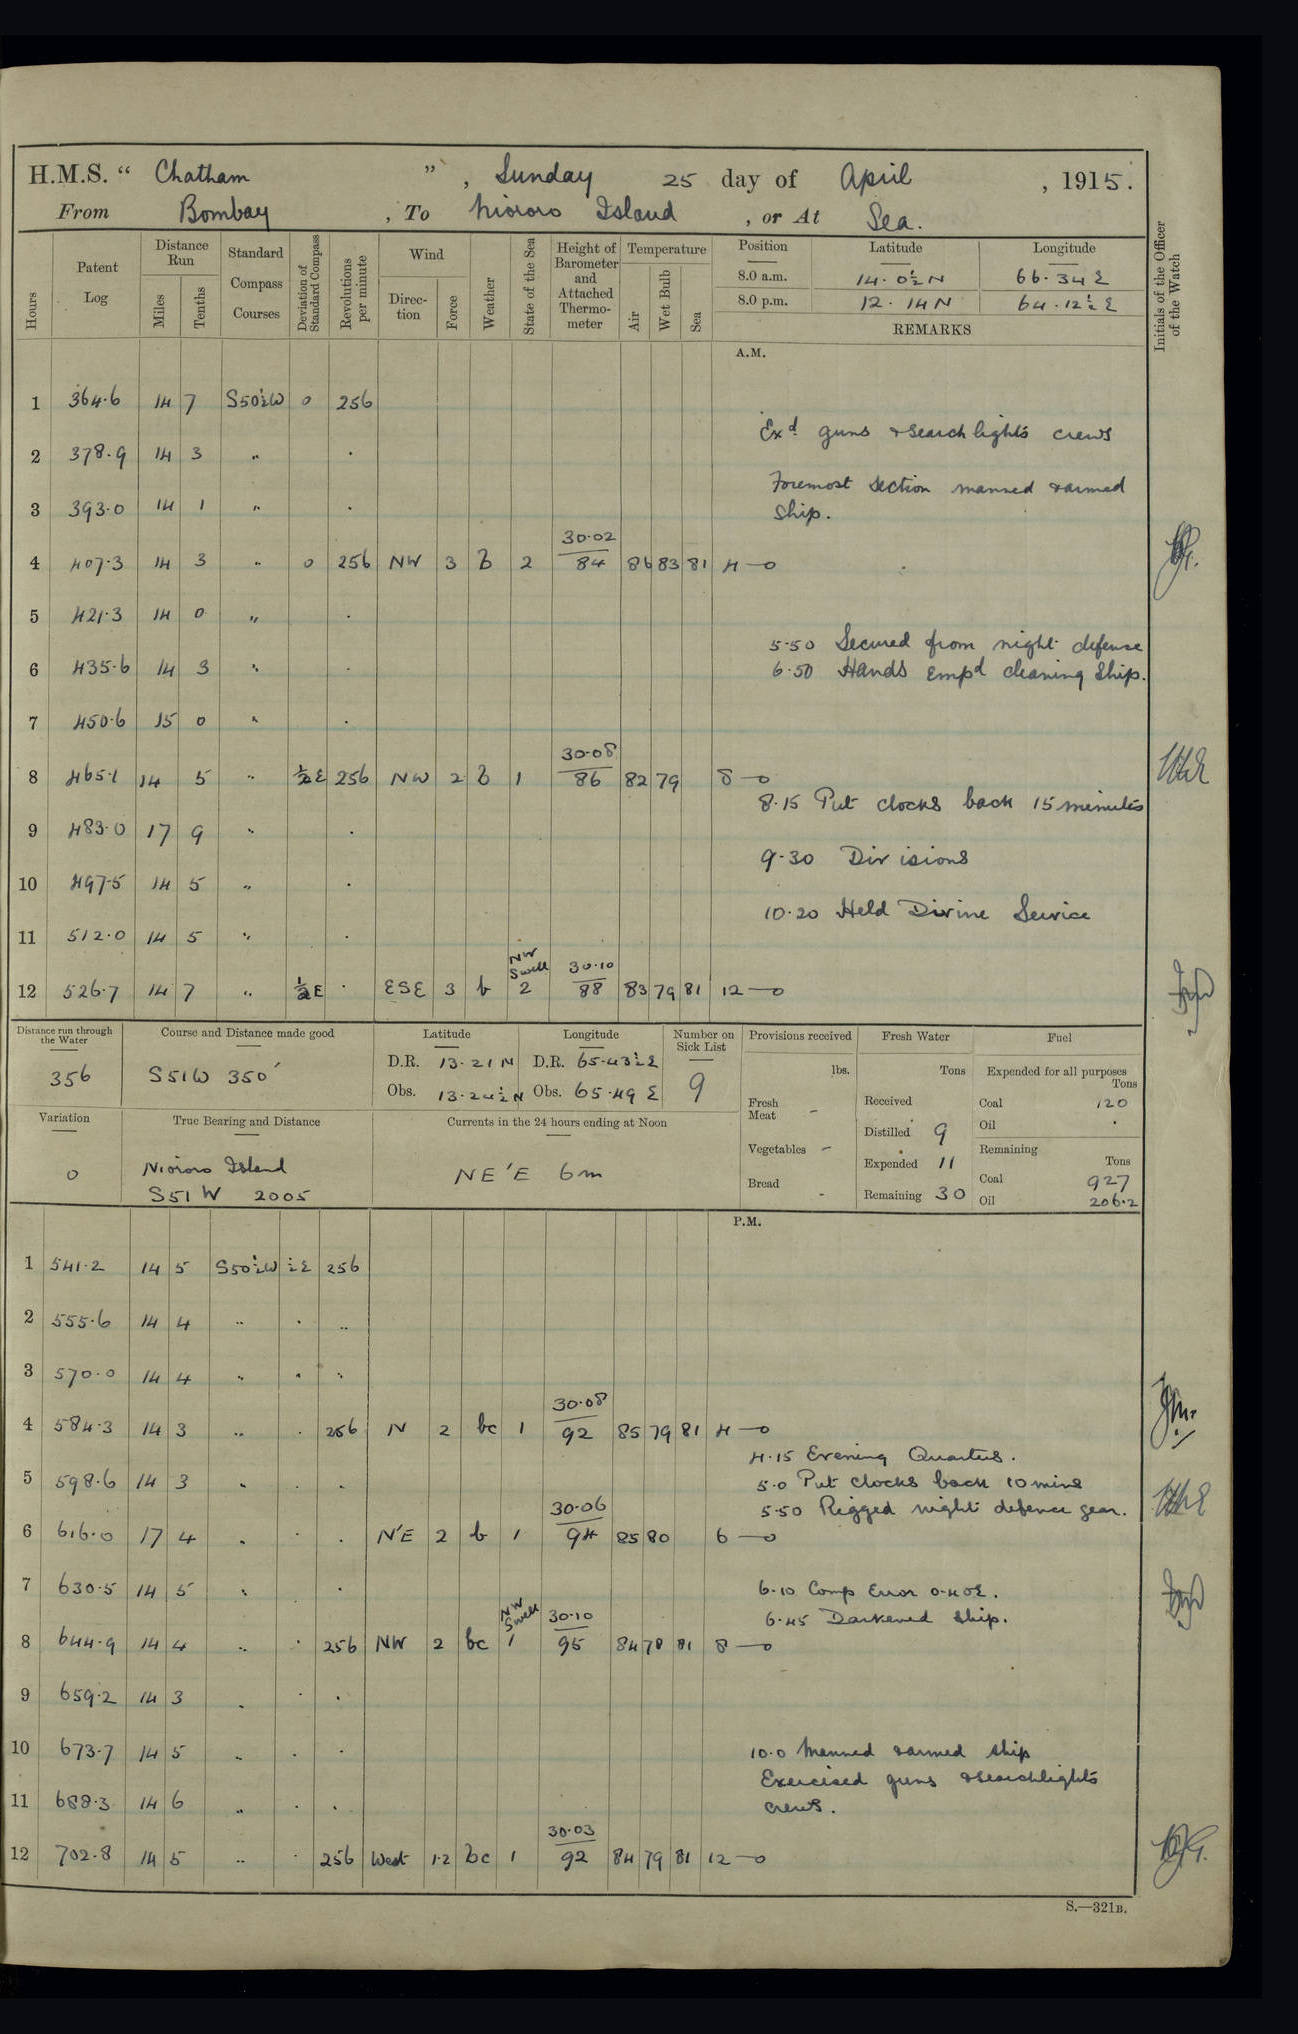 H.M.S. “ Chatham ” , Sunday 25 day of April , 1915.
From Bombay , To Niororo Island , or At Sea.
Hours
Patent Log
Distance Run
Miles
Tenths
Standard Compass Courses
Deviation of Standard Compass
Revolutions per minute
Wind
Direction
Force
Weather
State of the Sea
Height of Barometer and Attached Thermometer
Temperature
Air
Wet Bulb
Sea
Position Latitude Longitude
8.0 a.m. 14. 0½ N 66. 34 E
8.0 p.m. 12. 14 N 64. 12½ E
REMARKS
Initials of the Officer of the Watch
A.M.
1 364.6 14 7 S50½W 0 256
Exd guns & searchlights crews
2 378.9 14 3 "
Foremost section manned & armed
3 393.0 14 1 "
Ship.
30.02
4 407.3 14 3 " 0 256 NW 3 b 2 84 86 83 81 4—0
5 421.3 14 0 "
5.50 Secured from night defense
6 435.6 14 3 "
6.50 Hands empd cleaning Ship.
7 450.6 15 0 "
30.08
8 465.1 14 5 " ½E 256 NW 2 b 1 86 82 79 8—0
8.15 Put clocks back 15 minutes
9 483.0 17 9 "
9.30 Divisions
10 497.5 14 5 "
10.20 Held Divine Service
11 512.0 14 5 "
NW Swell 30.10
12 526.7 14 7 " ½E . ESE 3 b 2 88 83 79 81 12—0
Distance run through the Water
356
Course and Distance made good
S51W 350'
Latitude
D.R. 13.21 N
Obs. 13.24½ N
Longitude
D.R. 65.43½ E
Obs. 65.49 E
Number on Sick List
9
Provisions received
lbs.
Fresh Meat -
Vegetables -
Bread -
Fresh Water
Tons
Received
Distilled 9
Expended 11
Remaining 30
Fuel
Expended for all purposes
Tons
Coal 120
Oil .
Remaining
Tons
Coal 927
Oil 206.2
Variation
0
True Bearing and Distance
Niororo Island
S51 W 2005
Currents in the 24 hours ending at Noon
NE'E 6m
P.M.
1 541.2 14 5 S50½W ½E 256
2 555.6 14 4 " . "
3 570.0 14 4 " . "
30.08
4 584.3 14 3 " . 256 N 2 bc 1 92 85 79 81 4—0
4.15 Evening Quarters.
5 598.6 14 3 "
5.0 Put clocks back 10 mins
5.50 Rigged night defence gear.
30.06
6 616.0 17 4 " . . N'E 2 b 1 94 85 80 6—0
7 630.5 14 5 "
6.10 Comp Error 0.40E.
6.45 Darkened Ship.
NW Swell 30.10
8 644.9 14 4 " . 256 NW 2 bc 1 95 84 78 81 8—0
9 659.2 14 3 " . .
10 673.7 14 5 " . .
10.0 Manned & armed ship
Exercised guns & searchlights
11 688.3 14 6 " . .
crews.
30.03
12 702.8 14 5 " . 256 West 1.2 bc 1 92 84 79 81 12—0
S.—321B.